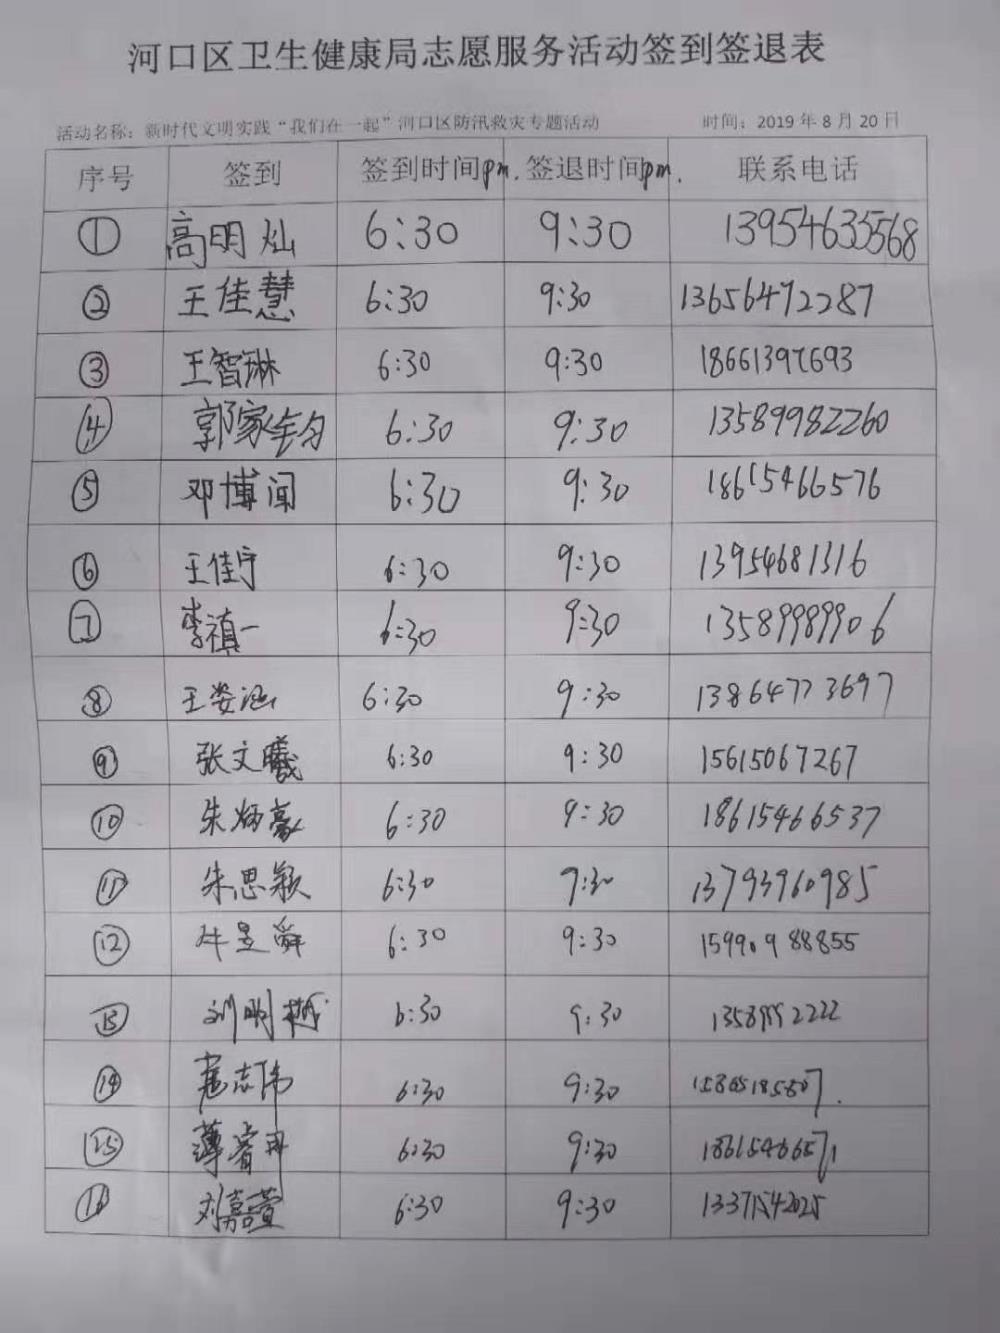 河口区卫生健康局志愿服务活动签到签退表
活动名称：新时代文明实践“我们在一起”河口区防汛救灾专题活动 时间：2019年8月20日
序号 签到 签到时间pm. 签退时间pm. 联系电话
① 高明灿 6:30 9:30 13954635568
② 王佳慧 6:30 9:30 13656472287
③ 王智琳 6:30 9:30 18661397693
④ 郭家钧 6:30 9:30 13589982260
⑤ 邓博闻 6:30 9:30 18615466576
⑥ 王佳宁 6:30 9:30 13954681316
⑦ 李禛一 6:30 9:30 13589989906
⑧ 王姿涵 6:30 9:30 13864773697
⑨ 张文曦 6:30 9:30 15615067267
⑩ 朱炳豪 6:30 9:30 18615466537
⑪ 朱思颖 6:30 9:30 13793960985
⑫ 牛昱舜 6:30 9:30 15990988855
⑬ 刘明 6:30 9:30 13589992222
⑭ 志伟 6:30 9:30
⑮ 薄睿 6:30 9:30 18615466571
⑯ 刘嘉萱 6:30 9:30 13371542025